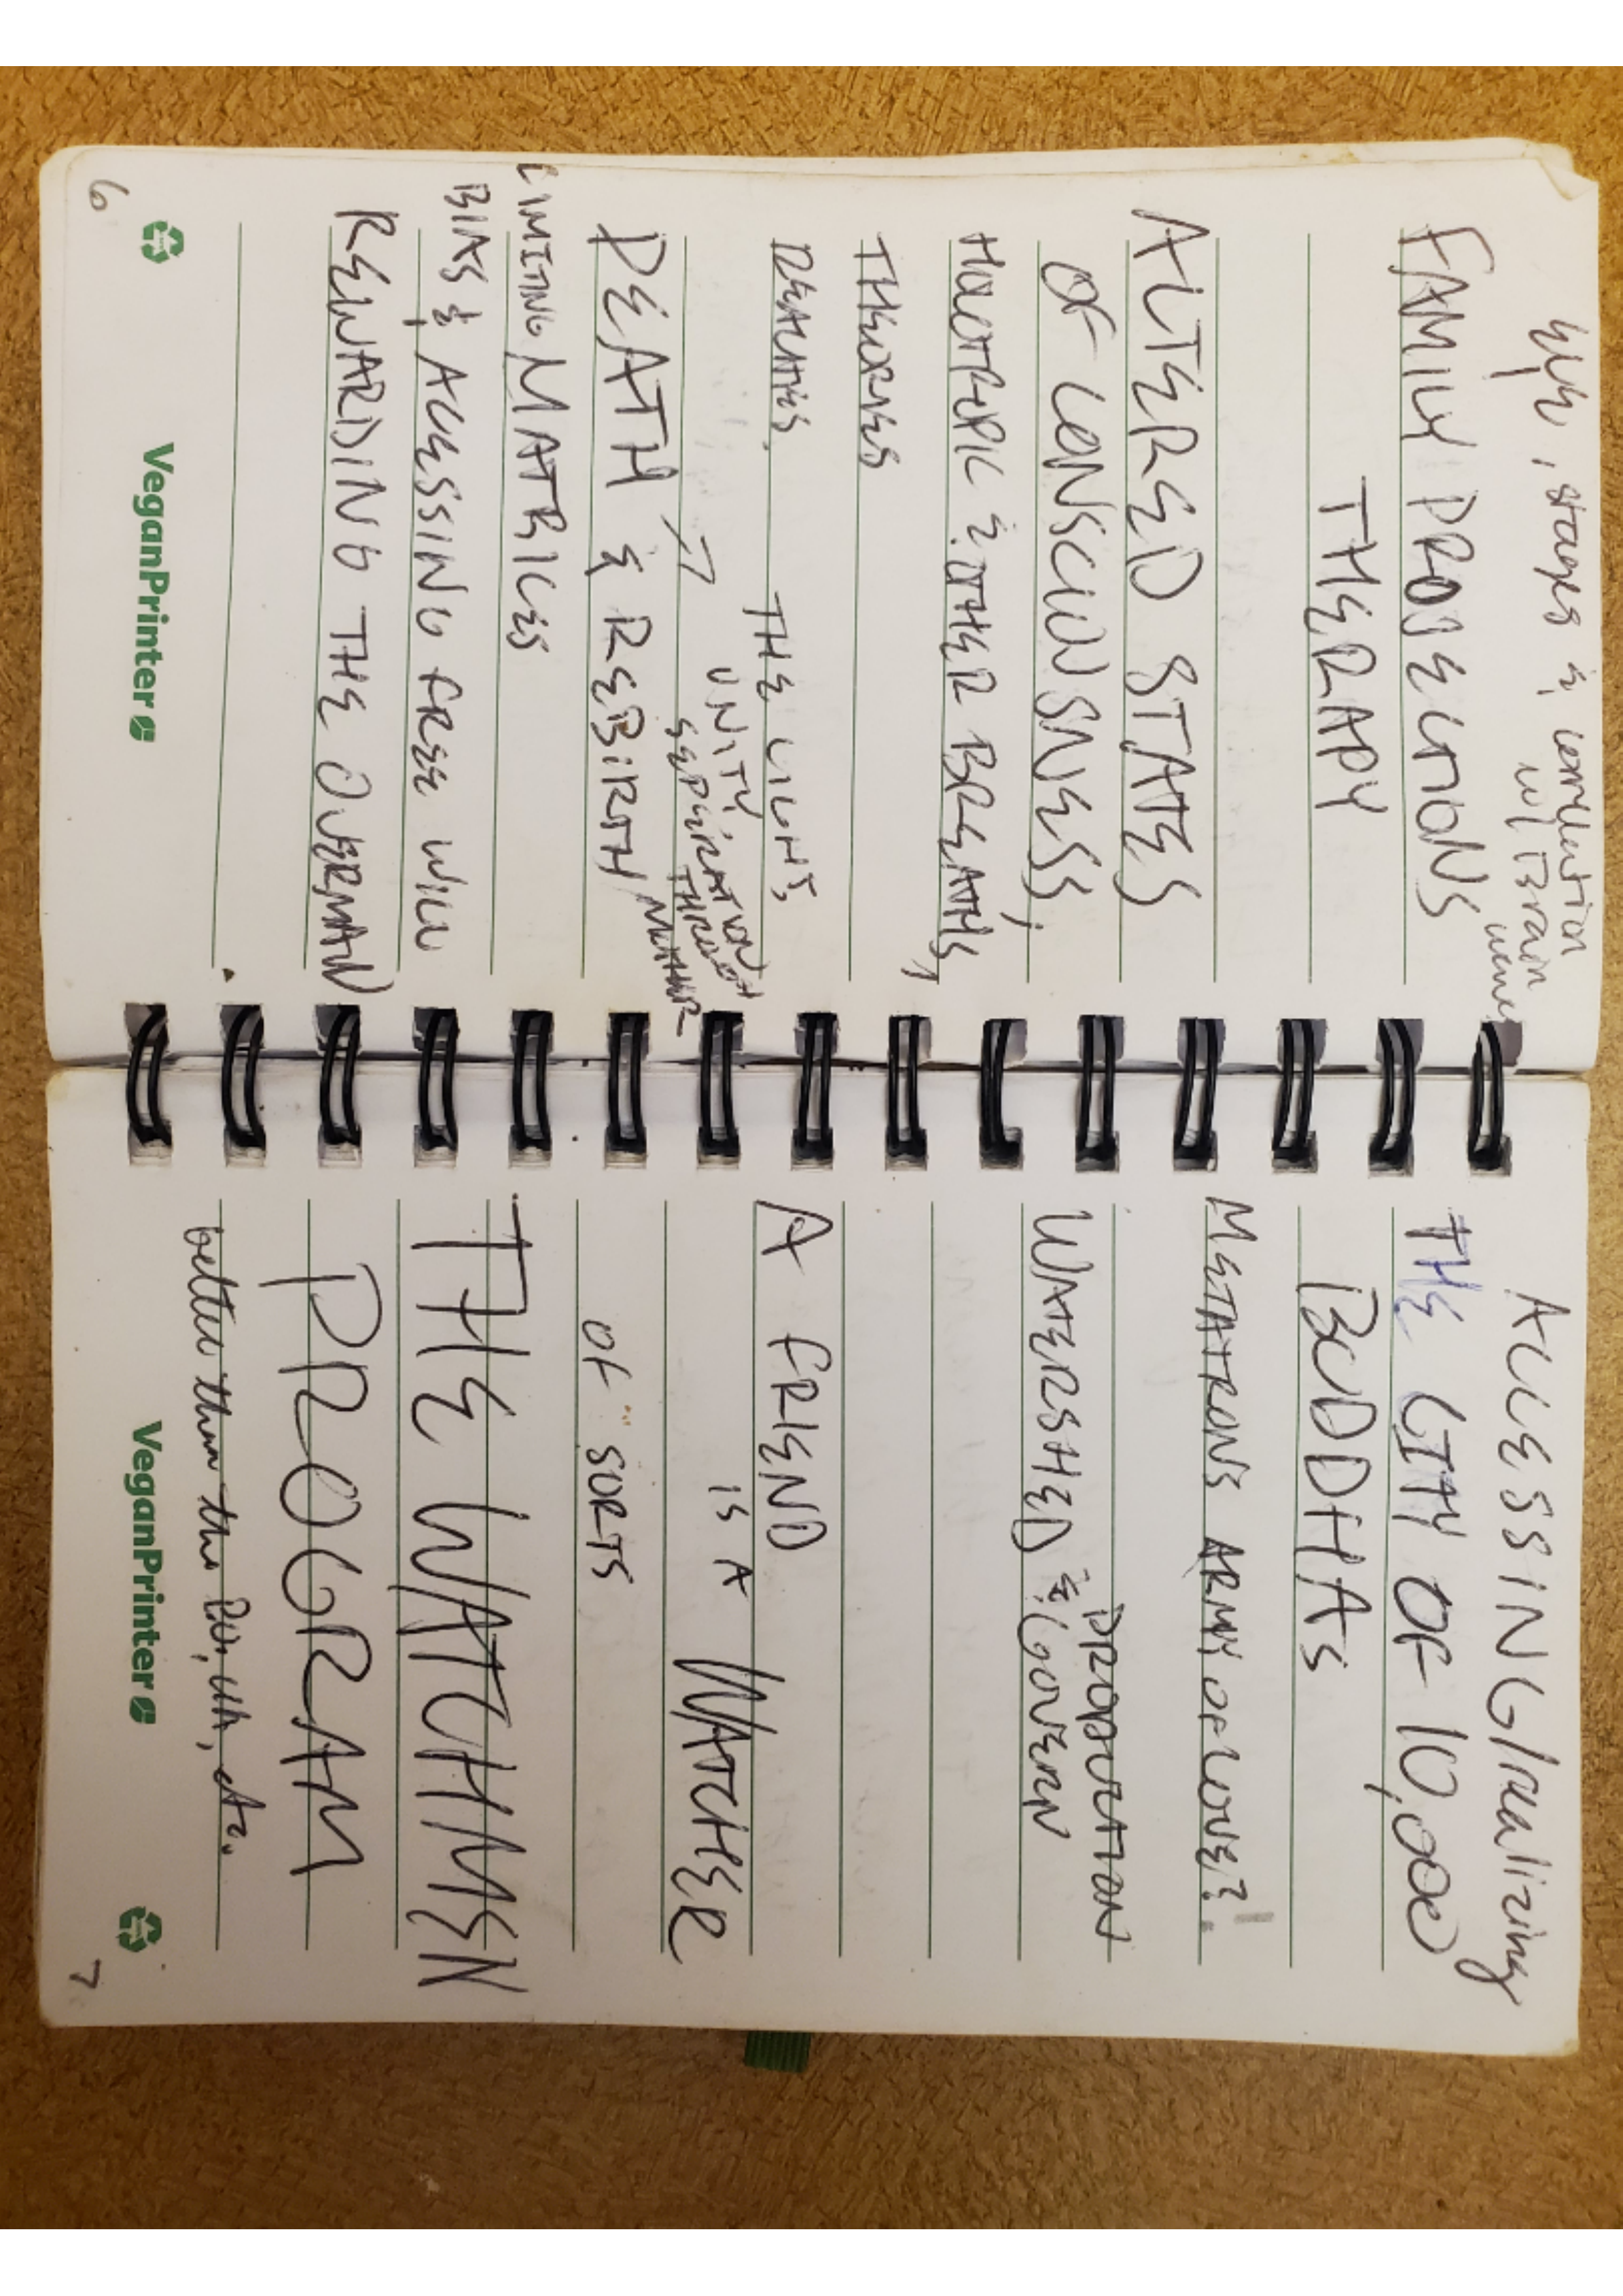 stages & correlation
w/ Brain
waves
FAMILY PROJECTIONS
THERAPY
ALTERED STATES
OF CONSCIOUSNESS,
HOLOTROPIC & OTHER BREATHS,
THEORIES
REALITIES, THE LIGHT,
UNITY,
SEPERATION
THROUGH
DEATH & REBIRTH
LIMITING MATRICES
BIAS & ACCESSING FREE WILL
REWARDING THE OVERMAN
VeganPrinter
6
ACCESSING/realizing
THE CITY OF 10,000
BUDDHAS
METATRONS ARMY OF LOVE?
PROPORTION
WATERSHED & GOVERN
A FRIEND
IS A WATCHER
OF SORTS
THE WATCHMEN
PROGRAM
better than the etc.
VeganPrinter
7